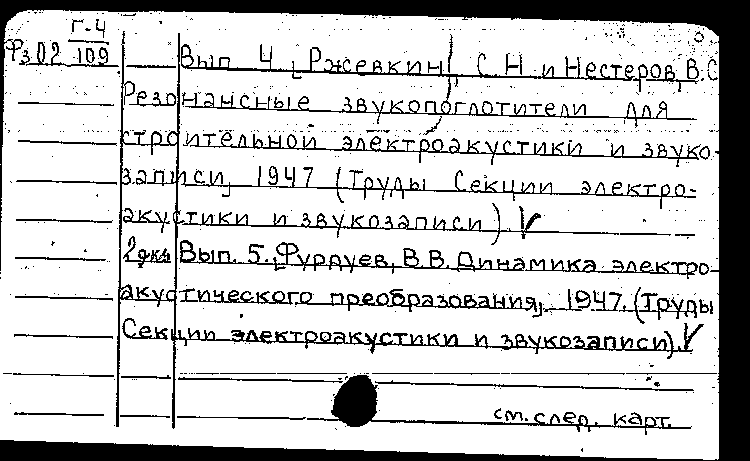 Г-4
Фз02 109
Вып 4 [Ржевкин, С.Н. и Нестеров, В.С
Резонансные звукопоглотители для
строительной электроакустики и звуко-
записи, 1947 (Труды Секции электро-
акустики и звукозаписи)
2 экз Вып. 5. [Фурдуев, В.В. Динамика электро-
акустического преобразования, 1947. (Труды
Секции электроакустики и звукозаписи).
см. след. карт.